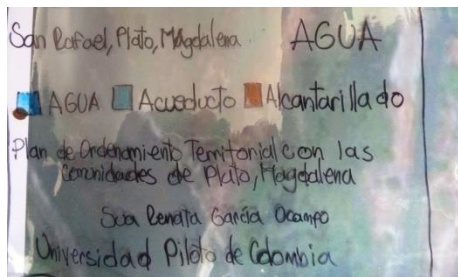 San Rafael, Plato, Magdalena AGUA
AGUA Acueducto Alcantarillado
Plan de Ordenamiento Territorial con las
Comunidades de Plato, Magdalena
Renata García Ocampo
Universidad Piloto de Colombia